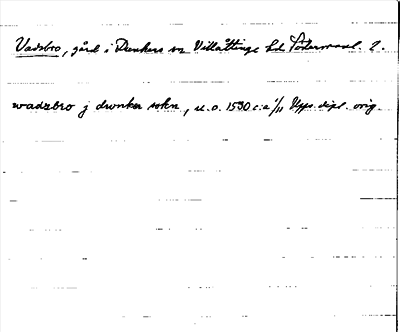 Vadsbro, gård i Dunkers sn Villåttinge hd Södermanl. 2.
wadzbro j dwnker sokn, u.o. 1530 c:a 1/11 Upps. dipl. orig.